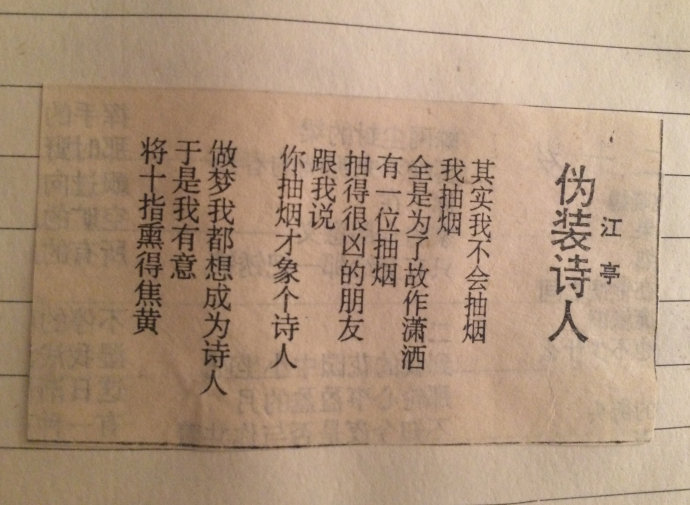 伪装诗人
江亭
其实我不会抽烟
我抽烟
全是为了故作潇洒
有一位抽烟
抽得很凶的朋友
跟我说
你抽烟才象个诗人
做梦我都想成为诗人
于是我有意
将十指熏得焦黄